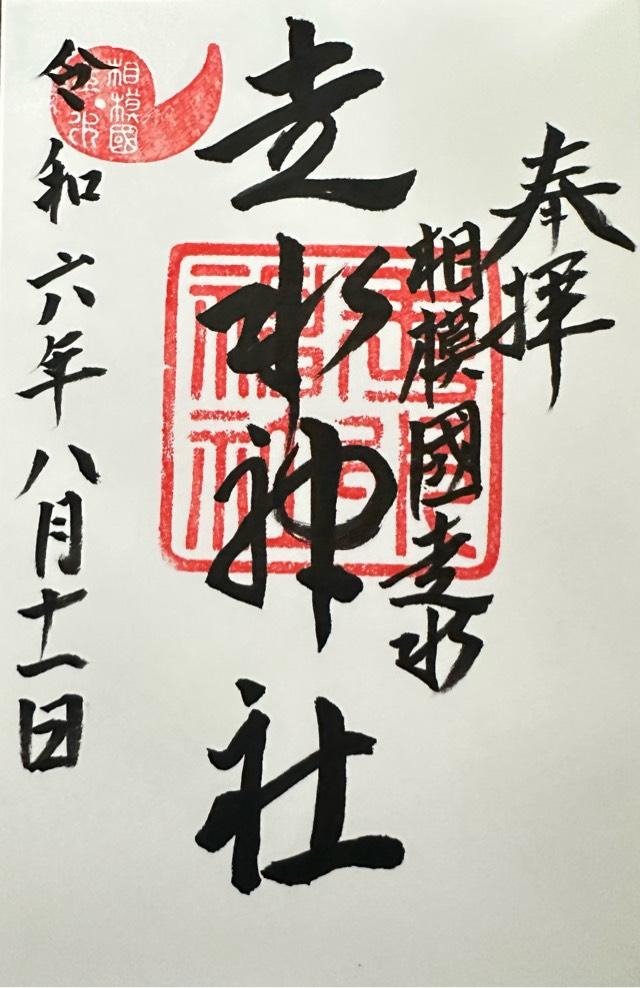 奉拝
相模國走水
走水神社
令和六年八月十一日
相模國
走水
走水
神社